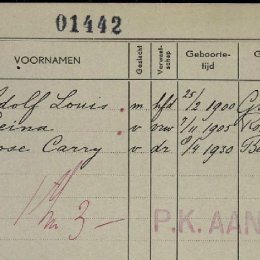 01442
VOORNAMEN Geslacht Verwant-schap Geboorte-tijd G
dolf Louis m hfd 25/2 1900 Gr
eina v vrw 7/11 1905 Ro
ose Carry v dr 9/4 1930 Be
3 -
P.K. AAN